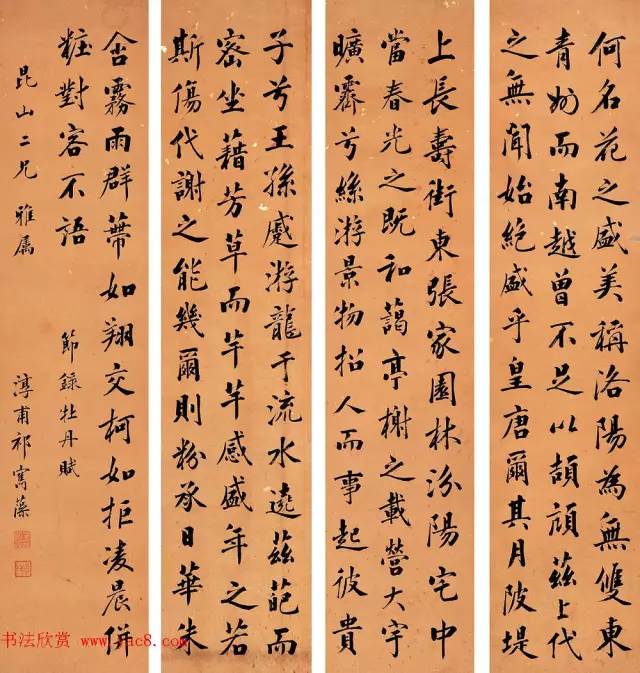 何名花之盛美稱洛陽為無雙東
青州而南越曾不足以頡頏茲上代
之無聞始絕盛乎皇唐爾其月陂堤
上長壽街東張家園林汾陽宅中
當春光之既和藹亭榭之載營大宇
曠霽兮絲游景物招人而事起彼貴
子兮王孫蹙游龍于流水遶茲葩而
密坐藉芳草而芊芊感盛年之若
斯傷代謝之能幾爾則粉承日華朱
含霧雨群蒂如翔交柯如拒凌晨併
粧對客不語 節錄牡丹賦
昆山二兄 雅屬 淳甫祁寯藻
书法欣赏 www.yac8.com